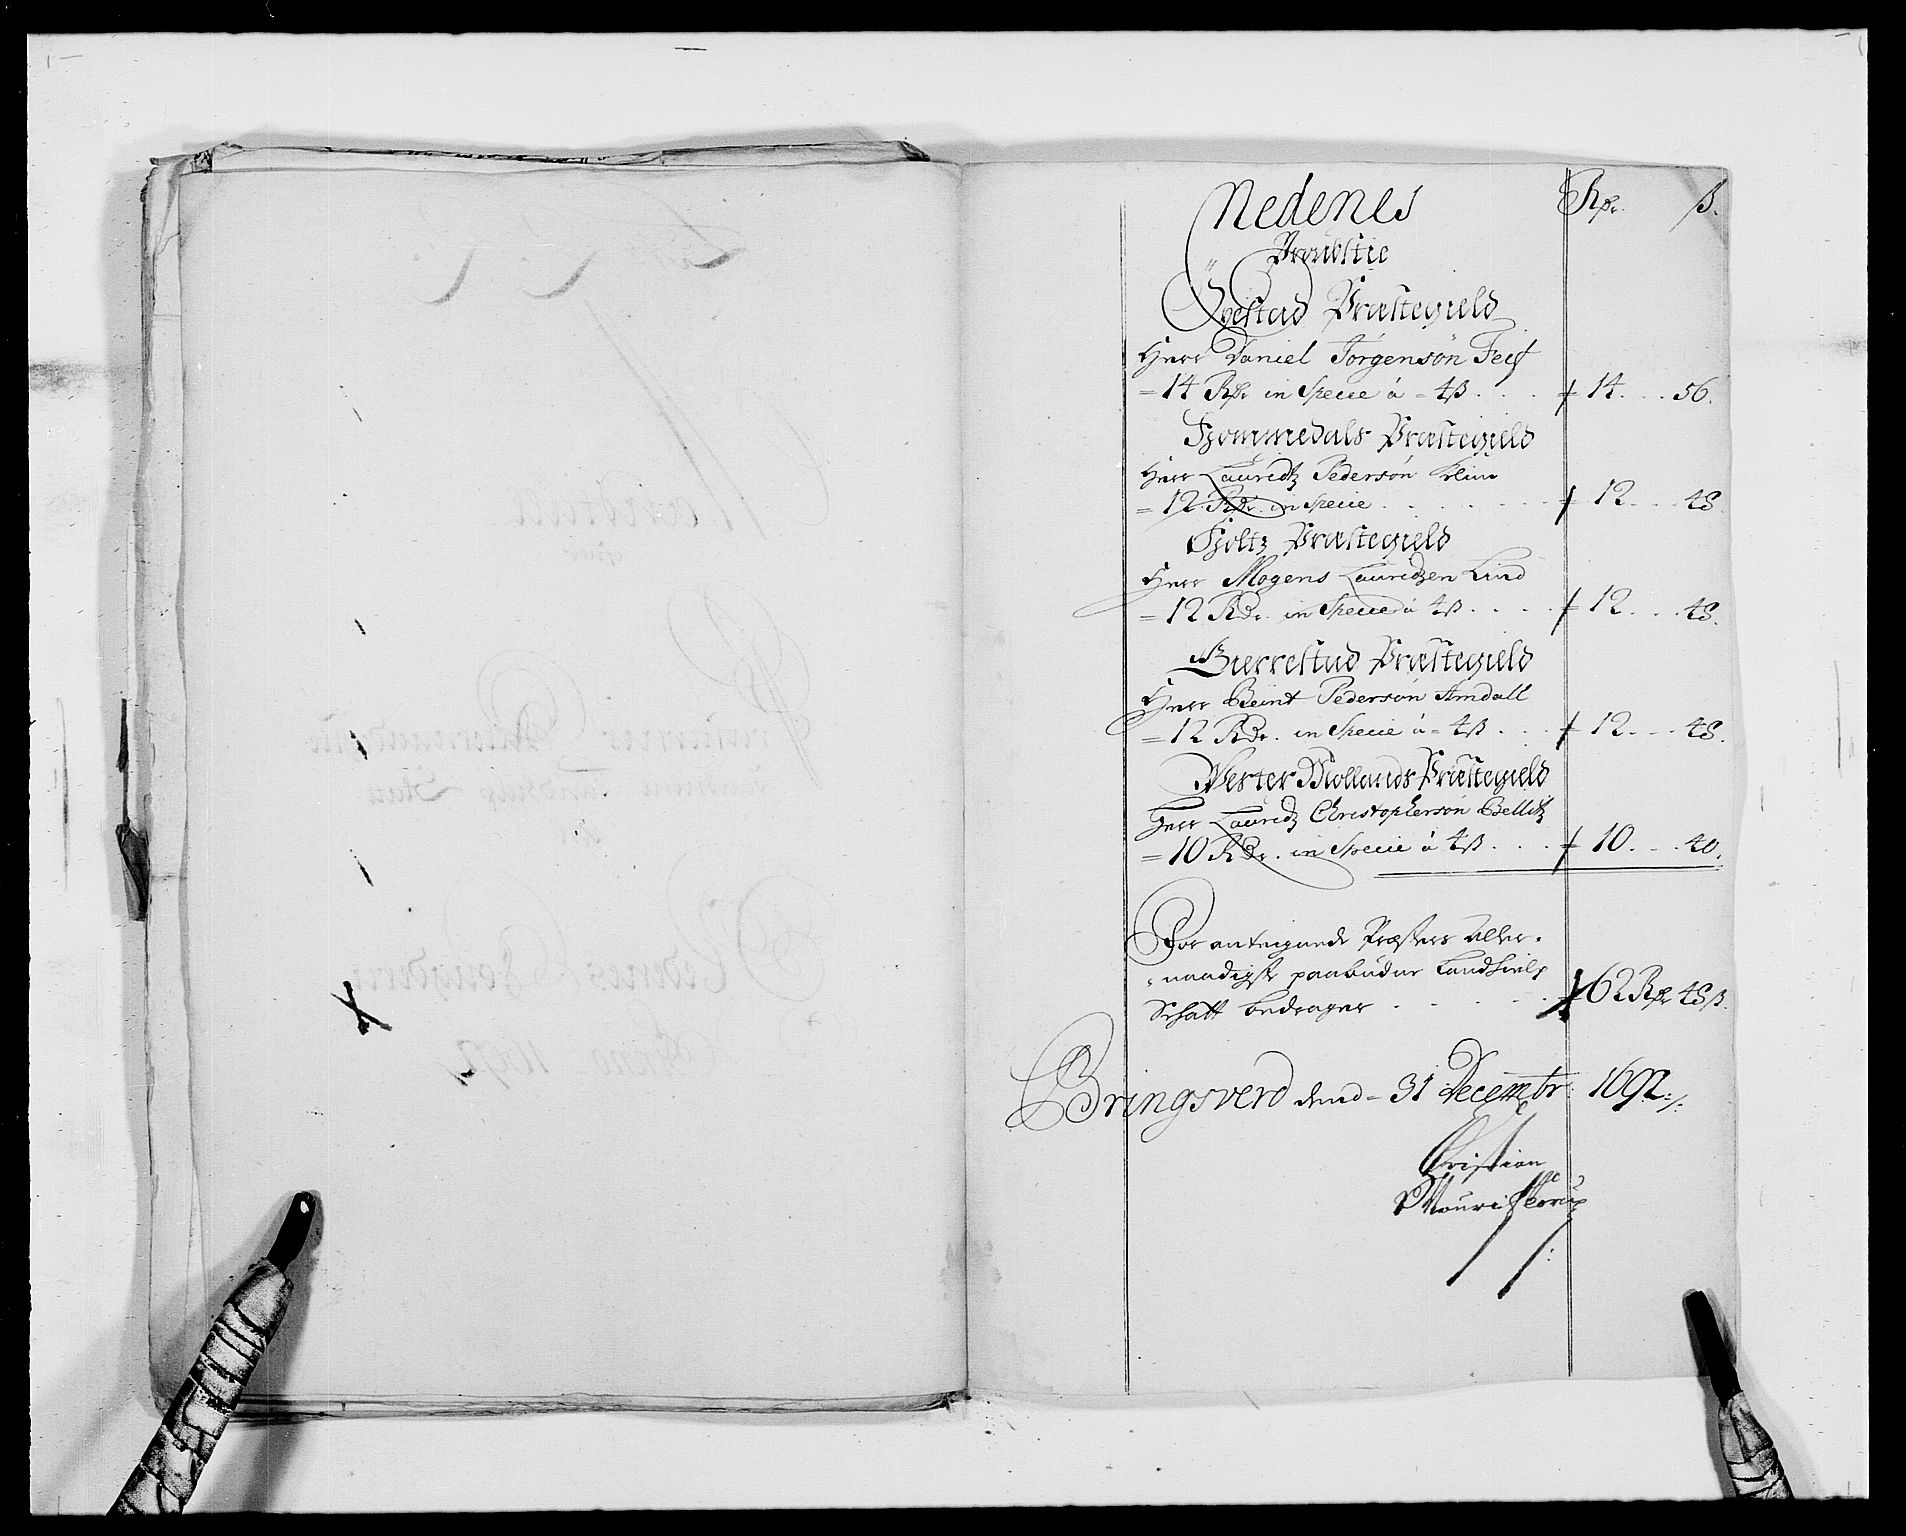 Rdr. ß.
Nedenes
Proustie
Øyestad Præstegield
Herr Daniel Jørgensøn Feis
= 14 Rdr in Specie á = 4ß . . . 14 . . . 56.
Hommedals Præstegield
Herr Lauridtz Pedersøn Klim
= 12 Rdr. in Specie . . . . . . 12 . . . 48.
Holtz Præstegield
Herr Mogens Lauridzen Lind
= 12 Rdr. in Specie á 4ß . . . . 12 . . . 48.
Gierrestad Præstegield
Herr Beint Pedersøn Amdall
= 12 Rdr. in Specie á = 4ß . . . 12 . . . 48.
Vester Mollands Præstegield
Herr Lauridtz Christophersøn Bellitz
= 10 Rdr. in Specie á 4ß . . . 10 . . . 40.
For anteignede Præsters aller-
naadigste paabudne Landhielps
Schatt bedrager . . . . . 62 Rdr 48 ß.
Bringsverd dend = 31 Decembr: 1692 :/:
Christian
Mouridtz